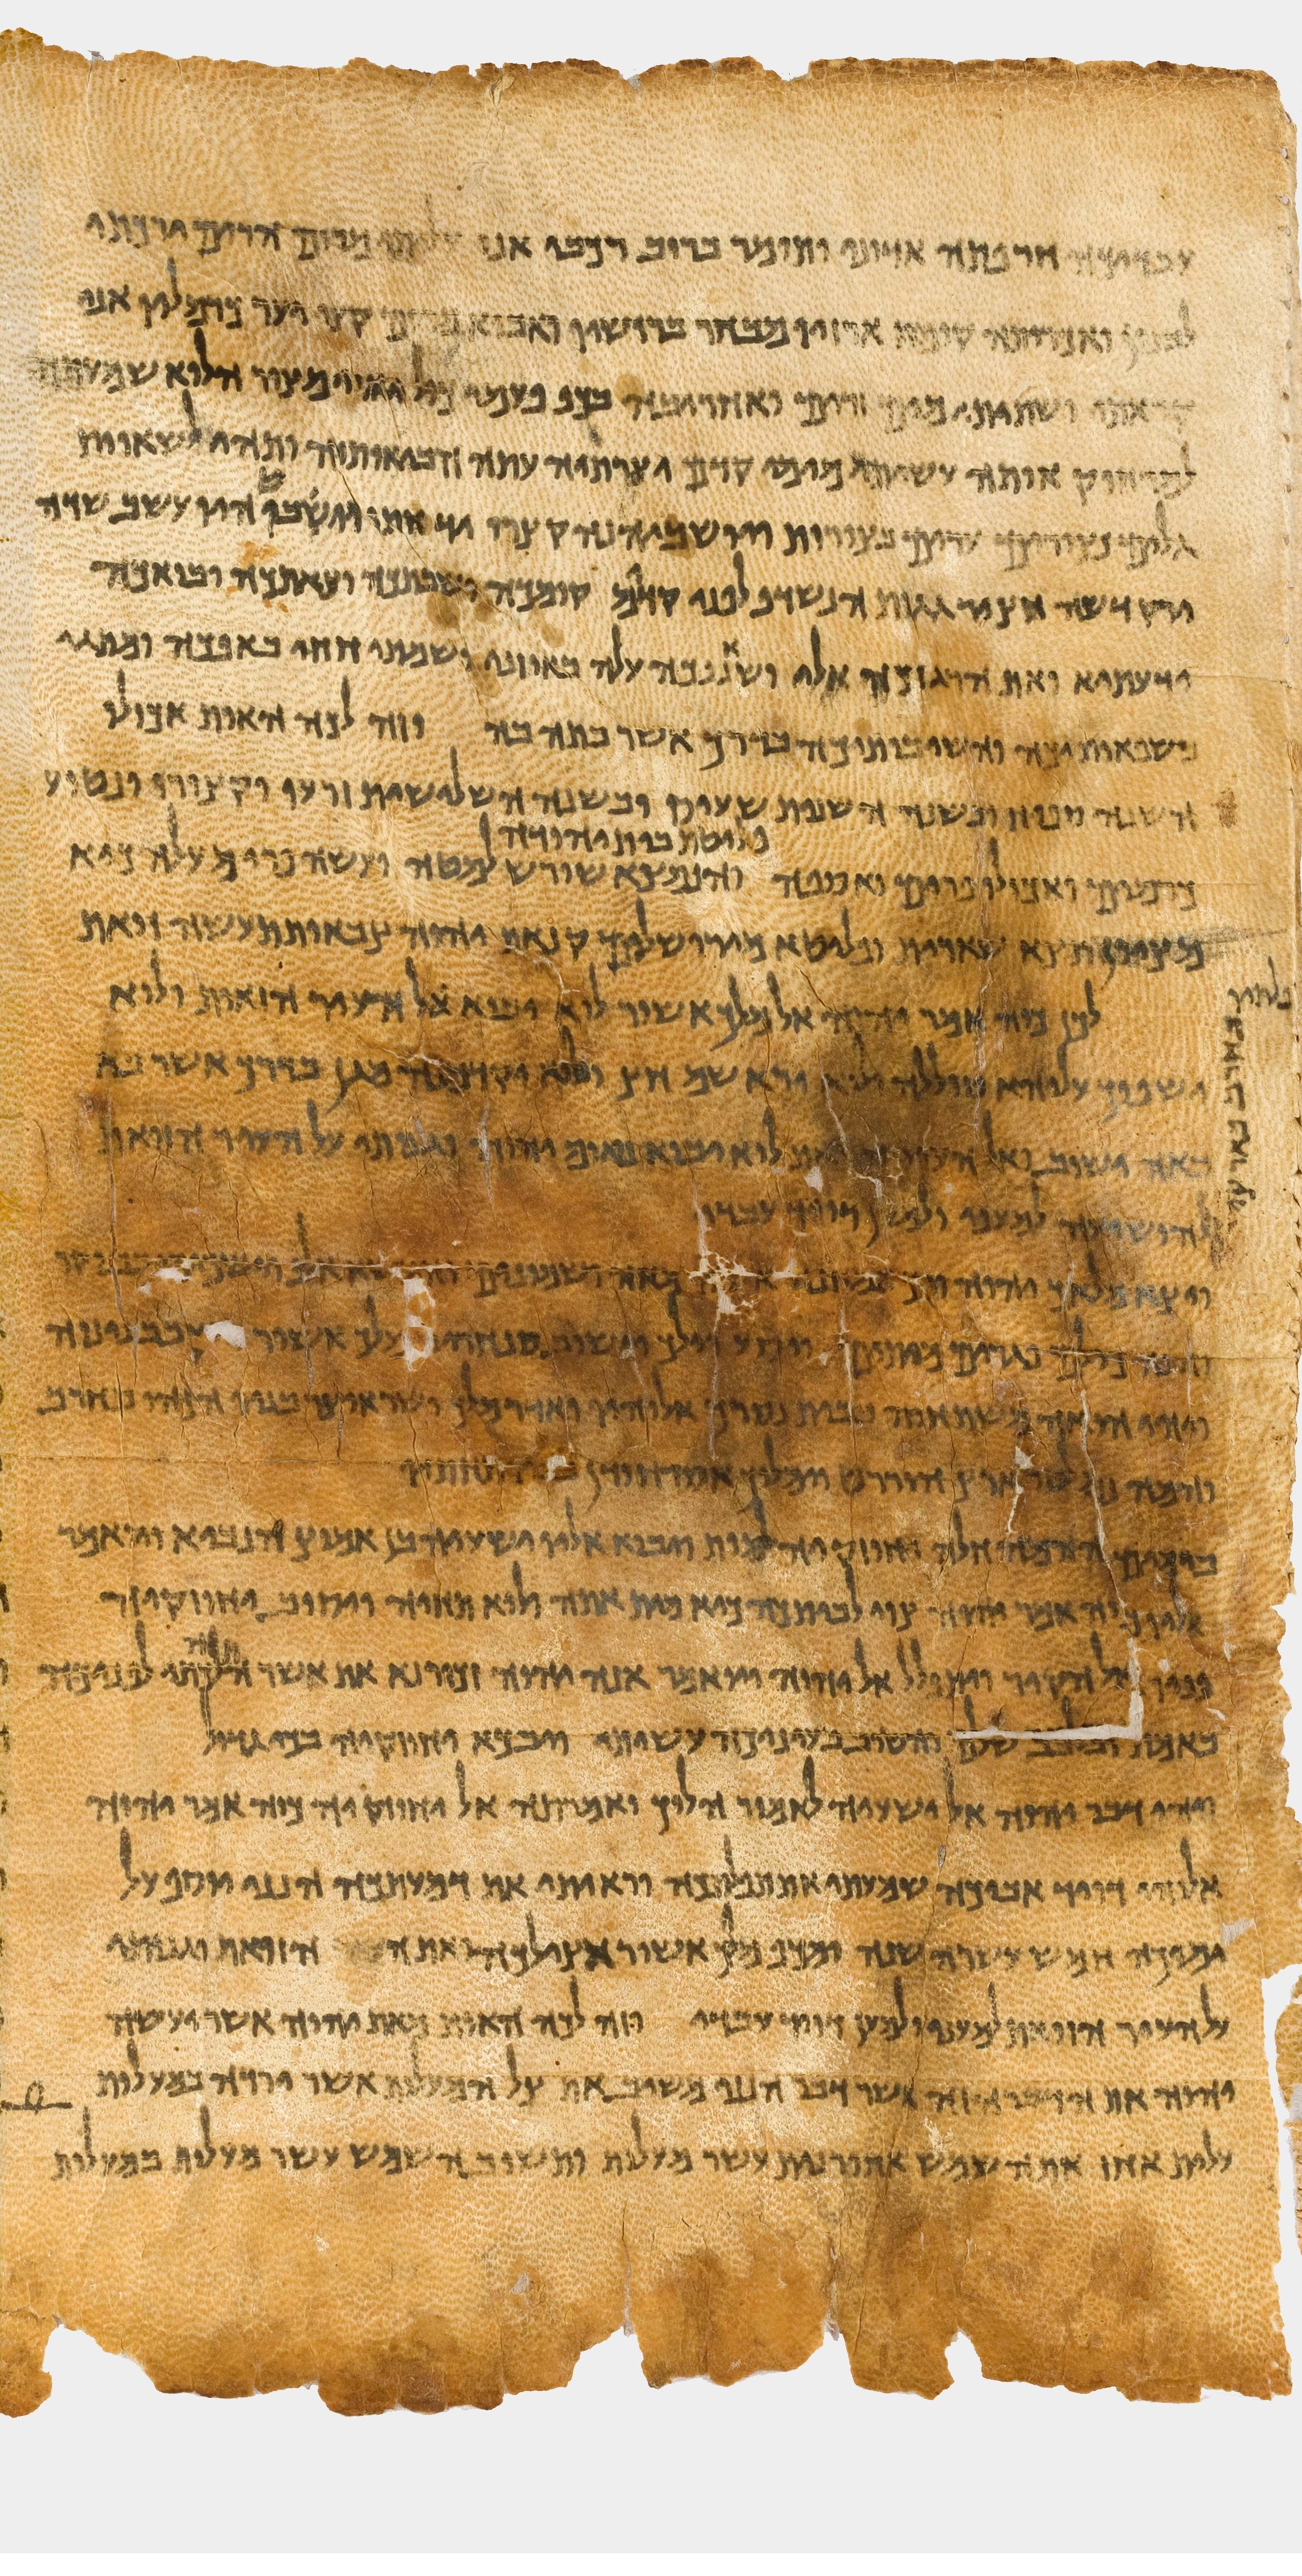 עבדיכה חרפתה אדוני ותומר ברוב רכבי אני עליתי מרום הרים ירכתי
לבנון ואכרותה קומת ארזיו מבחר ברושיו ואבואה מרום קצו יער כרמלו אני
קראתי ושתיתי מים זרים ואחריבה בכף פעמי כול יאורי מצור הלוא שמעתה
למרחוק אותה עשיתי מימי קדם יצרתיה עתה הביאותיה ותהי לשאות
גלים נצורים ערים בצורות ויושביהנה קצרי יד חתו ויבושו היו עשב שדה
וירק דשה חציר גגות הנשדף לפני קדים קומכה ושבתכה וצאתכה ובואכה
ידעתי ואת הרגזכה אלי ושאננכה עלה באוזני ושמתי חחי באפכה ומתגי
בשפאותיכה והשיבותיכה בדרך אשר באתה בה וזה לכה האות אכולו
השנה ספיח ובשנה השנית שעיס ובשנה השלישית זרעו וקצורו ונטוע
פליטת בית יהודה
כרמים ואכולו פרים ואספה והנמצא שורש למטה ועשה פרי מעלה כיא
מציון תצא שארית ופליטא מירושלים קנאת יהוה צבאות תעשה זואת
לכן כוה אמר יהוה אל מלך אשור לוא יבוא אל העיר הזואת ולוא
ישפוך עליהא סוללה ולוא יורא שם חץ ולוא יקדמנה מגן בדרך אשר בא
באה ישוב ואל העיר הזואת לוא יבוא נאום יהוה וגנותי על העיר הזואת
להושיעה למעני ולמען דויד עבדי
ויצא מלאך יהוה ויך במחנה אשור מאה ושמונים אלף וישכימו בבוקר
והנה כולם פגרים מתים ויסע וילך וישוב סנחריב מלך אשור וישב בנינוה
ויהי הואה משתחוה בבית נסרך אלוהיו ואדרמלך ושראצר בניו הכהו בחרב
והמה נמלטו ארץ הוררט וימלוך אסרחודן בנו תחתיו
בימים ההמה חלה יחזקיה למות ויבוא אליו ישעיה בן אמוץ הנביא ויואמר
אליו כוה אמר יהוה צוי לביתכה כיא מית אתה ולוא תחיה ויסוב יחזקיה
פניו אל הקיר ויתפלל אל יהוה ויואמר אנה יהוה זכור נא את אשר התהלכתי לפניכה
באמת ובלבב שלם והטוב בעיניכה עשיתי ויבך יחזקיה בכי גדול
ויהי דבר יהוה אל ישעיה לאמור הלוך ואמרתה אל יחזקיה כוה אמר יהוה
אלוהי דויד אביכה שמעתי את תפלתכה וראיתי את דמעתכה הנני יוסף על
ימיכה חמש עשרה שנה ומכף מלך אשור אצילכה ואת העיר הזואת וגנותי
על העיר הזואת למעני ולמען דויד עבדי וזה לכה האות מאת יהוה אשר יעשה
יהוה את הדבר הזה אשר דבר הנני משיב את צל המעלות אשר ירדה במעלות
עלית אחז את השמש אחורנית עשר מעלות ותשוב השמש עשר מעלות במעלות